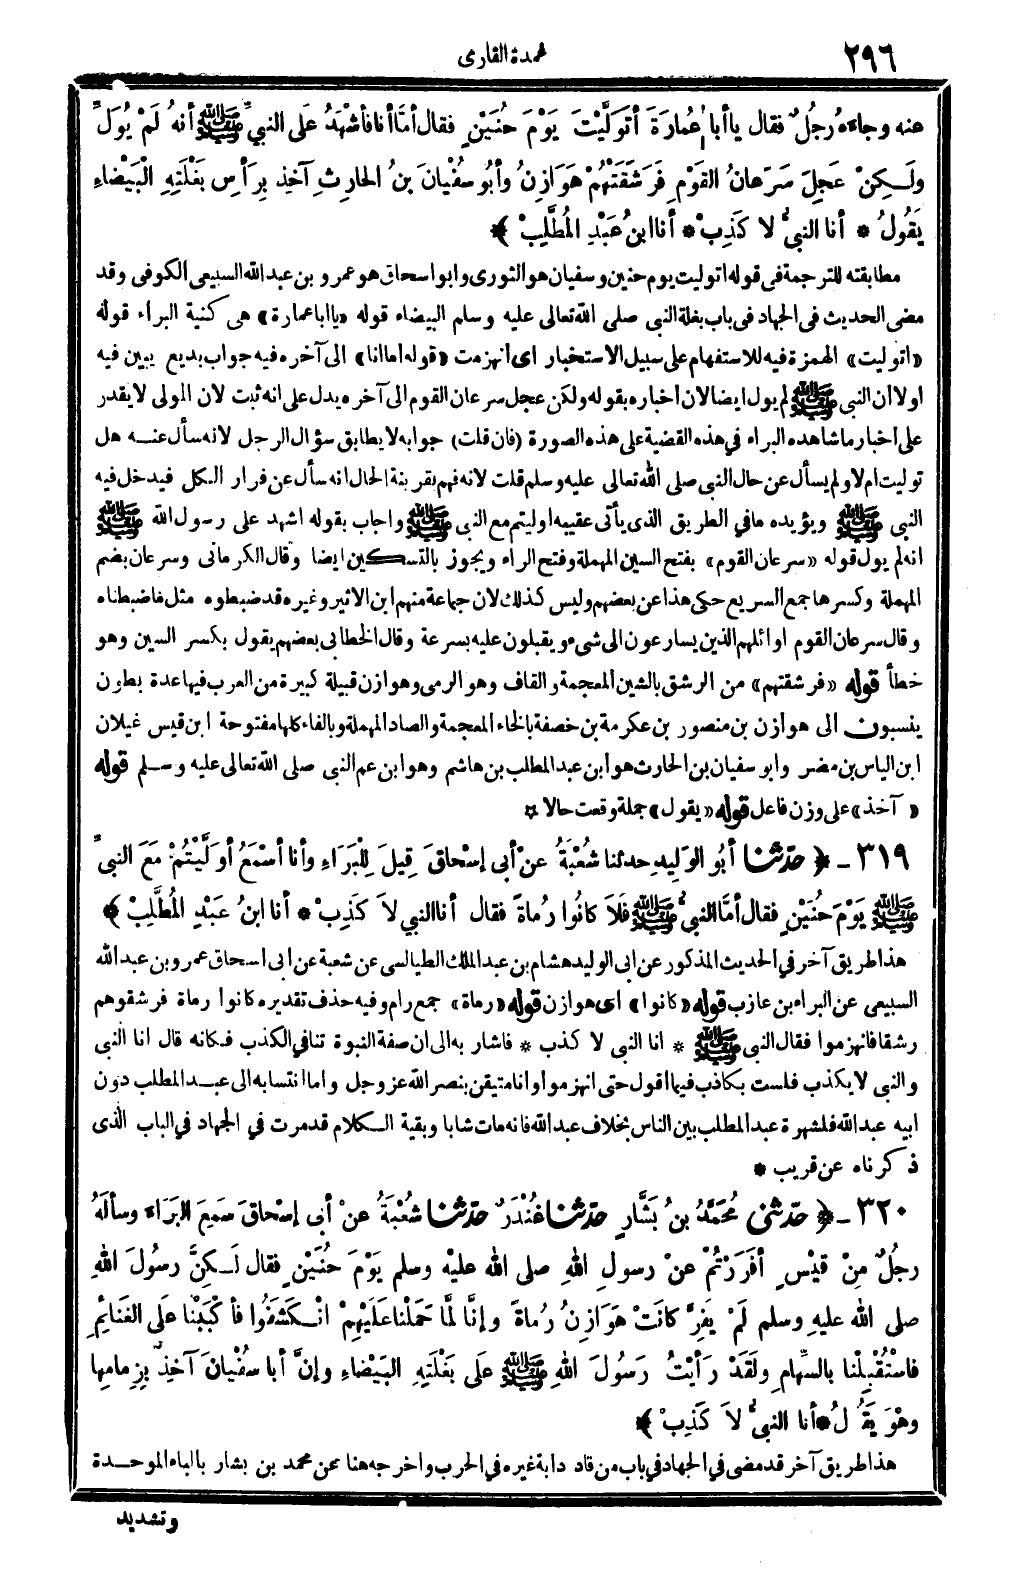 ٢٩٦
عمدة القارى
عنه وجاءَهُ رَجُلٌ فقال ياأبا عُمارَةَ أتَوَلَّيْتَ يَوْمَ حُنَيْنٍ فقال أمَّا أنا فأشْهَدُ عَلَى النبيِّ ﷺ أنهُ لَمْ يُوَلِّ
ولَـكِنْ عَجِلَ سَرَعانُ القَوْمِ فَرَشَقَتْهُمْ هَوَازِنُ وأبُو سُفْيانَ بنُ الحارِثِ آخِذٌ بِرَأسِ بَغْلَتِهِ الْبَيْضَاءِ
يَقُولُ * أنا النبيُّ لا كَذِبْ * أنا ابنُ عَبْدِ المُطَّلِبْ ﴾
مطابقته للترجمة فى قوله اتوليت يوم حنين وسفيان هو الثورى وابو اسحاق هو عمرو بن عبدالله السبيعى الكوفى وقد
مضى الحديث فى الجهاد فى باب بغلة النبى صلى الله تعالى عليه وسلم البيضاء قوله «يا ابا عمارة» هى كنية البراء قوله
«اتوليت» الهمزة فيه للاستفهام على سبيل الاستخبار اى انهزمت «قوله اما انا» الى آخره فيه جواب بديع يبين فيه
اولا أن النبى ﷺ لم يول ايضا لان اخباره بقوله ولكن عجل سرعان القوم الى آخره يدل على انه ثبت لان المولى لا يقدر
على اخبار ما شاهده البراء في هذه القضية على هذه الصورة (فان قلت) جوابه لا يطابق سؤال الرجل لانه سأل عنـه هل
توليت ام لا ولم يسأل عن حال النبى صلى الله تعالى عليه وسلم قلت لانه فهم بقرينة الحال انه سأل عن فرار الكل فيدخل فيه
النبى ﷺ ويؤيده ما في الطريق الذى يأتى عقيبه اوليتم مع النبى ﷺ واجاب بقوله اشهد على رسول الله ﷺ
انه لم يول قوله «سرعان القوم» بفتح السين المهملة وفتح الراء ويجوز بالتسكين ايضا وقال الكرمانى وسرعان بضم
المهملة وكسرها جمع السريع حكى هذا عن بعضهم وليس كذلك لان جماعة منهم ابن الاثير وغيره قد ضبطوه مثل ما ضبطناه
وقال سرعان القوم اوائلهم الذين يسارعون الى شىء ويقبلون عليه بسرعة وقال الخطابى بعضهم يقول بكسر السين وهو
خطأ قوله «فرشقتهم» من الرشق بالشين المعجمة والقاف وهو الرمى وهوازن قبيلة كبيرة من العرب فيها عدة بطون
ينسبون الى هوازن بن منصور بن عكرمة بن خصفة بالخاء المعجمة والصاد المهملة وبالفاء كلها مفتوحة ابن قيس غيلان
ابن الياس بن مضر وابو سفيان بن الحارث هو ابن عبد المطلب بن هاشم وهو ابن عم النبى صلى الله تعالى عليه وسـلم قوله
«آخذ» على وزن فاعل قوله «يقول» جملة وقعت حالا ☆
٣١٩ - ﴿ حَدَّثَنَا أبُو الوَلِيدِ حدثنا شُعْبَةُ عنْ أبى إسْحاقَ قِيلَ لِلْبَرَاءِ وأنا أسْمَعُ أوَلَّيْتُمْ مَعَ النبىِّ
ﷺ يَوْمَ حُنَيْنٍ فقال أمَّا النبىُّ ﷺ فَلاَ كانُوا رُماةً فقال أنا النبى لاَ كَذِبْ * أنا ابنُ عَبْدِ المُطَّلِبْ ﴾
هذا طريق آخر في الحديث المذكور عن ابى الوليد هشام بن عبد الملك الطيالسى عن شعبة عن ابى اسحاق عمرو بن عبدالله
السبيعى عن البراء بن عازب قوله «كانوا» اى هوازن قوله «رماة» جمع رام وفيه حذف تقديره كانوا رماة فرشقوهم
رشقا فانهزموا فقال النبى ﷺ * انا النبى لا كذب * فاشار به الى ان صفة النبوة تنافي الكذب فكانه قال انا النبى
والنبى لا يكذب فلست بكاذب فيما اقول حتى انهزموا وانا متيقن بنصر الله عز وجل واما انتسابه الى عبـد المطلب دون
ابيه عبد الله فلشهرة عبد المطلب بين الناس بخلاف عبد الله فانه مات شابا وبقية الـكلام قد مرت في الجهاد في الباب الذى
ذكرناه عن قريب *
٣٢٠ - ﴿ حَدَّثَنِي مُحَمَّدُ بنُ بَشَّارٍ حَدَّثَنَا غُنْدَرٌ حَدَّثَنَا شُعْبَةُ عنْ أبى إسْحاقَ سَمِعَ البَرَاءَ وسألَهُ
رجُلٌ مِنْ قَيْسٍ أفَرَرْتُمْ عنْ رسولِ اللهِ صلى الله عليْه وسلم يَوْمَ حُنَيْنٍ فقال لَـكِنَّ رسُولَ اللهِ
صلى الله عليهِ وسلم لَمْ يَفِرَّ كانَتْ هَوَازِنُ رُماةً وإنَّا لَمَّا حَمَلْنا عَلَيْهِمْ انْـكَشَفُوا فأكْبَبْنا عَلَى الغَنائِمِ
فاسْتُقْبِلْنا بالسِّهامِ ولَقَدْ رَأيْتُ رَسُولَ اللهِ ﷺ عَلَى بَغْلَتِهِ البَيْضاءِ وإنَّ أبا سُفْيانَ آخِذٌ بِزِمامِها
وهْوَ يَقُولُ * أنا النبىُّ لاَ كَذِبْ ﴾
هذا طريق آخر قد مضى في الجهاد في باب من قاد دابة غيره في الحرب واخرجه هنا عن محمد بن بشار بالباء الموحـدة
وتشديد